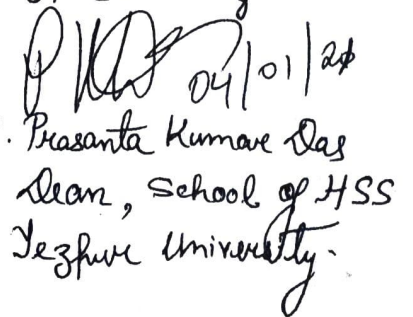 04/01/2
Prasanta Kumar Das
Dean, School of HSS
Tezpur University.